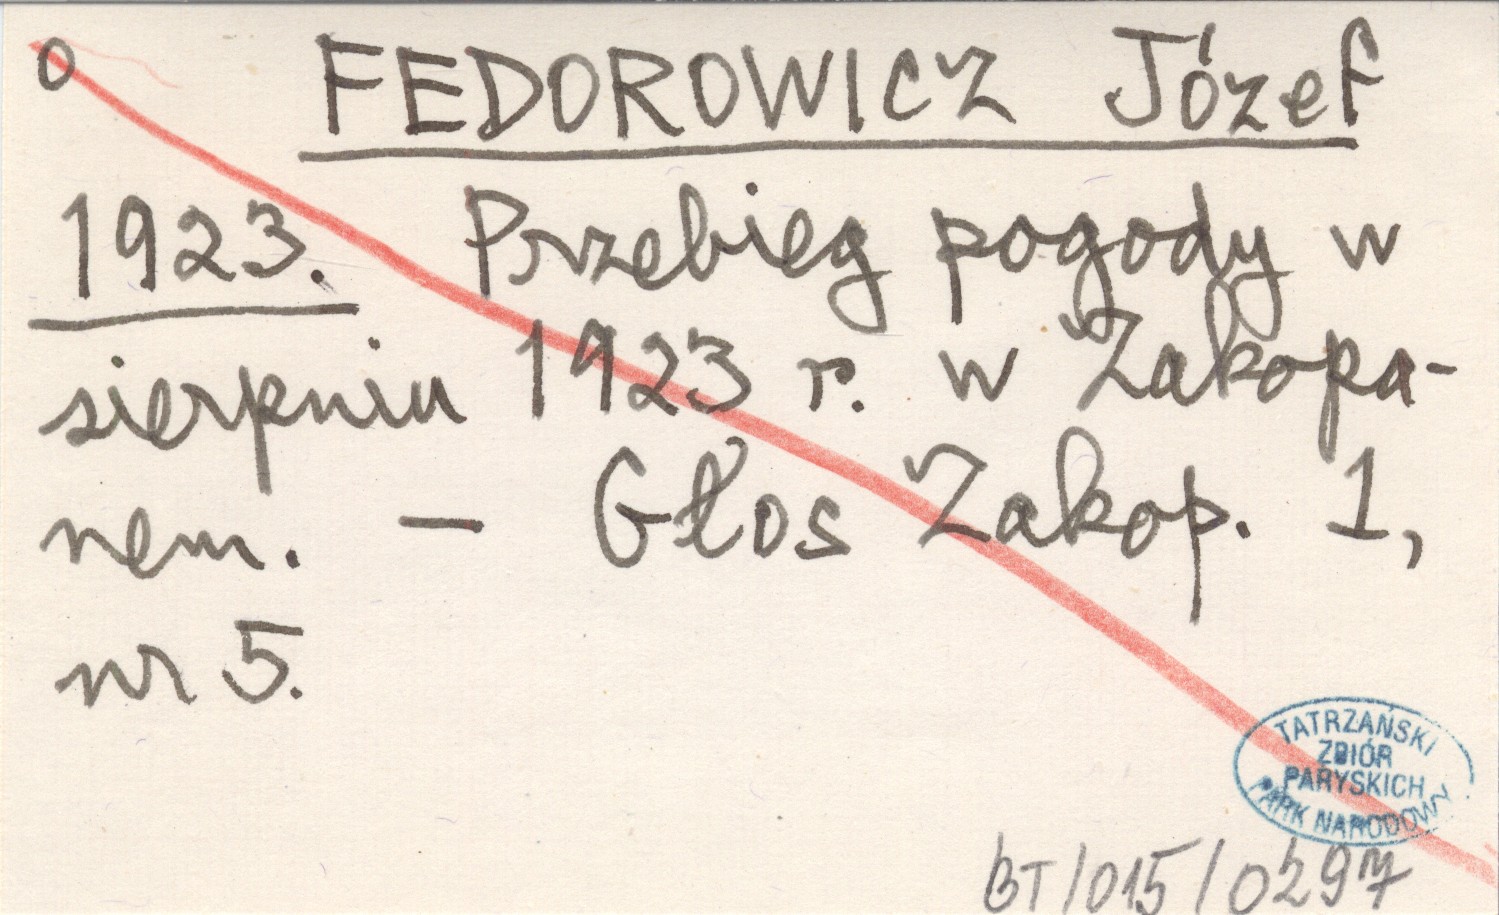 o FEDOROWICZ Józef
1923. Przebieg pogody w
sierpniu 1923 r. w Zakopa-
nem. — Głos Zakop. 1,
nr 5.
TATRZAŃSKI
ZBIÓR
PARYSKICH
PARK NARODOWY
BT/015/0297